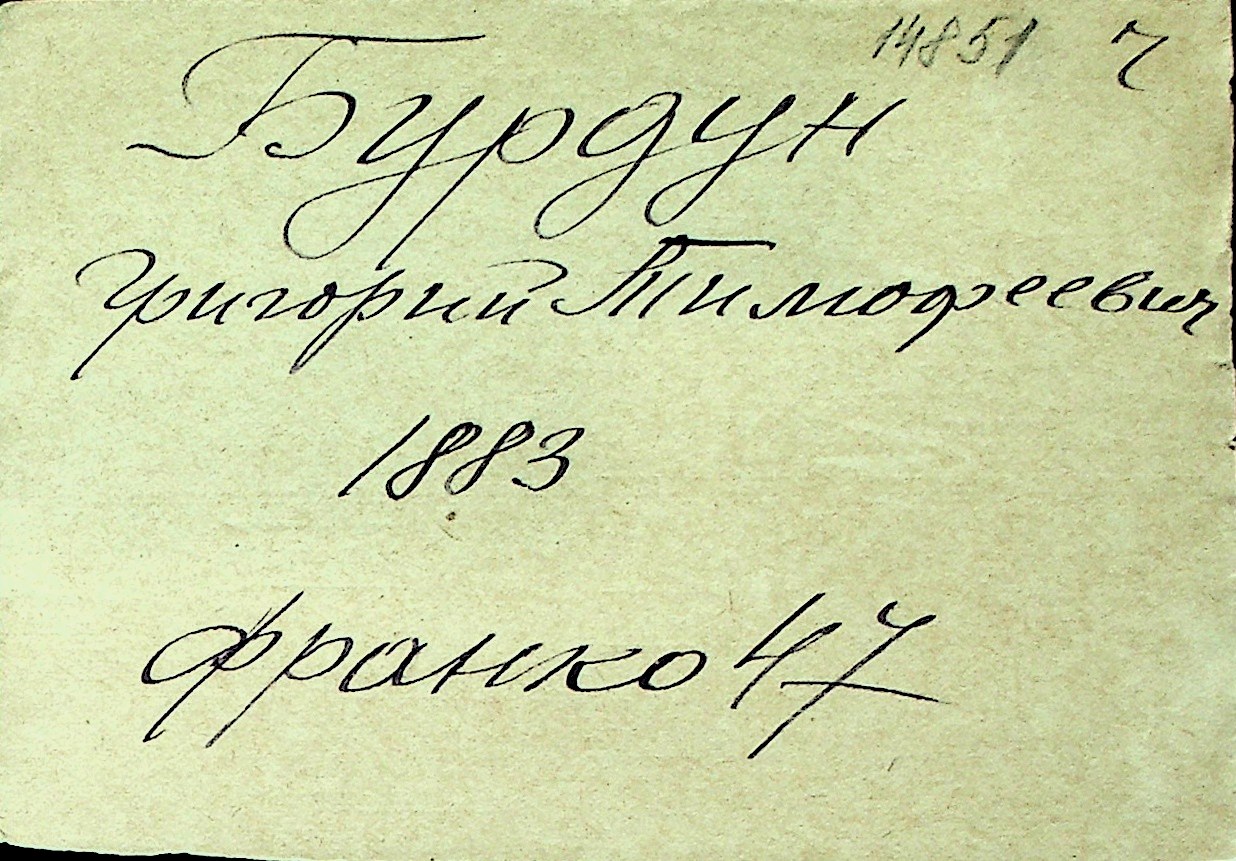 14851 ч
Бурдун
Григорий Тимофеевич
1883
Франко 47